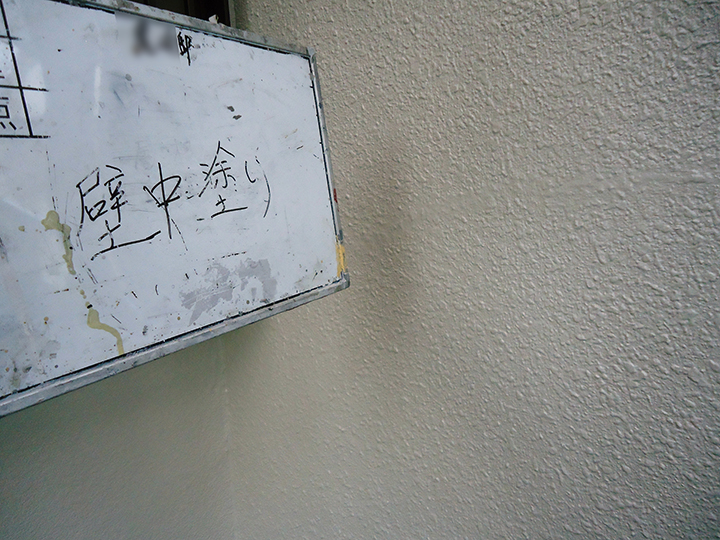 邸
点
壁中塗り